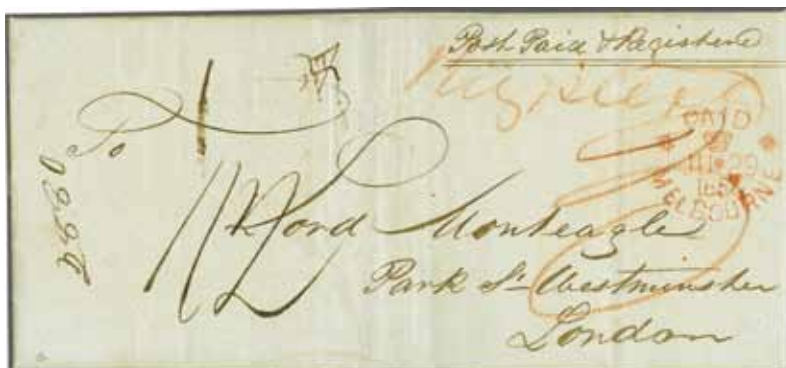 Post Paid & Registered
Registered
PAID
MELBOURNE
To
Lord Monteagle
Park St. Westminster
London